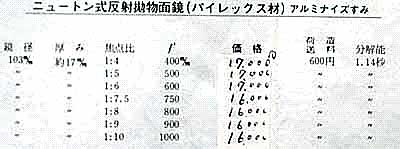 ニュートン式反射抛物面鏡(パイレックス材) アルミナイズすみ
鏡径 厚み 焦点比 f 価格 荷造送料 分解能
103㎜ 約17㎜ 1:4 400㎜ 17,000 600円 1.14秒
〃 〃 1:5 500 17,000 〃 〃
〃 〃 1:6 600 17,000 〃 〃
〃 〃 1:7.5 750 16,000 〃 〃
〃 〃 1:8 800 16,000 〃 〃
〃 〃 1:9 900 16,000 〃 〃
〃 〃 1:10 1000 16,000 〃 〃